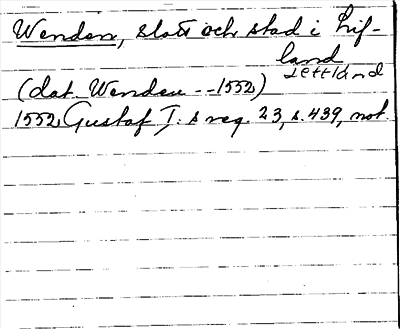 Wenden, slott och stad i Lif-
land
Lettland
(dat. Wenden -- 1552)
1552 Gustaf I:s reg. 23, s. 439, not.